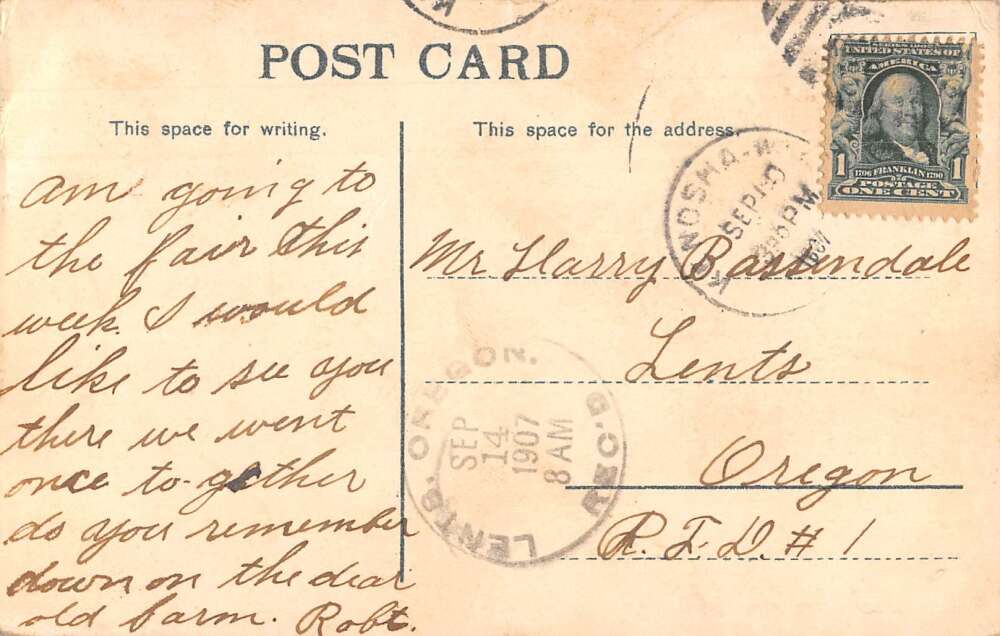 POST CARD
This space for writing.
This space for the address.
SERIES 1902
UNITED STATES OF
AMERICA
1 1
1706 FRANKLIN 1790
POSTAGE
ONE CENT
SEP 10
PM
1907
am going to
the fair this
week. I would
like to see you
there we went
once to-gether
do you remember
down on the dear
old farm. Robt.
Mr. Harry Bassendale
Lents
Oregon
R. F. D. # 1
LENTS. OREGON.
SEP
14
1907
8 AM
REC'D.